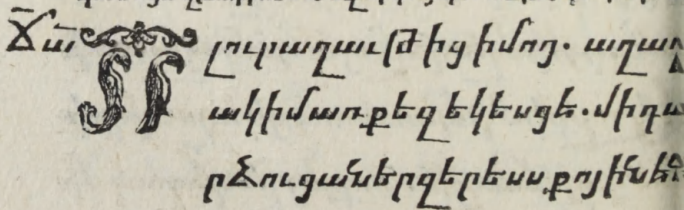 ՃԱ Տր լուր աղաւթից իմոց. աղաղ
ակ իմ առ քեզ եկեսցէ. մի դա
րձուցաներ զերեսս քո յինէն